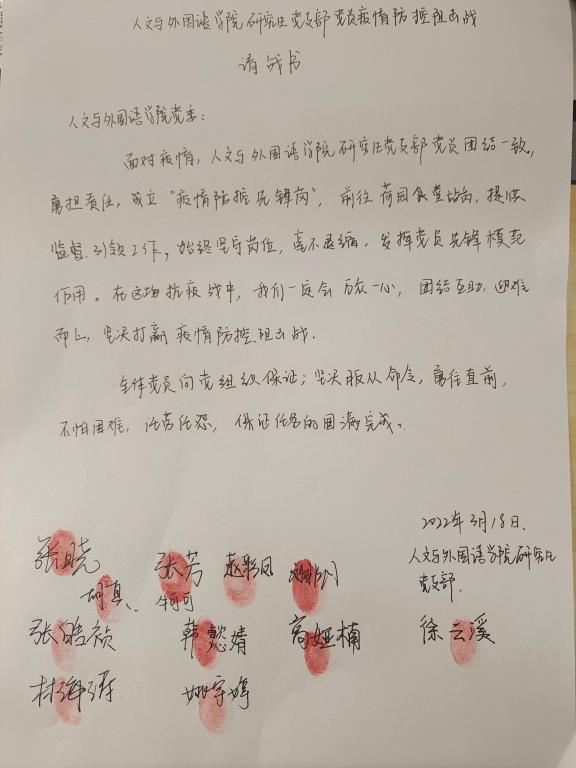 人文与外国语学院研究生党支部党员疫情防控阻击战
请战书
人文与外国语学院党委：
面对疫情，人文与外国语学院研究生党支部党员团结一致，
勇担责任，成立“疫情防控先锋岗”，前往荷园食堂站岗，提供
监督、引领工作，始终坚守岗位，毫不退缩，发挥党员先锋模范
作用。在这场抗疫战中，我们一定会万众一心，团结互助，迎难
而上，坚决打赢疫情防控阻击战.
全体党员向党组织保证；坚决服从命令，勇往直前，
不怕困难，任劳任怨，保证任务的圆满完成。
2022年3月18日、
人文与外国语学院研究生
党支部.
张晓 张芳 赵彩凤
胡真、 牛可可
张皓祯 韩懿婧 高娅楠 徐云溪
姚宇婷